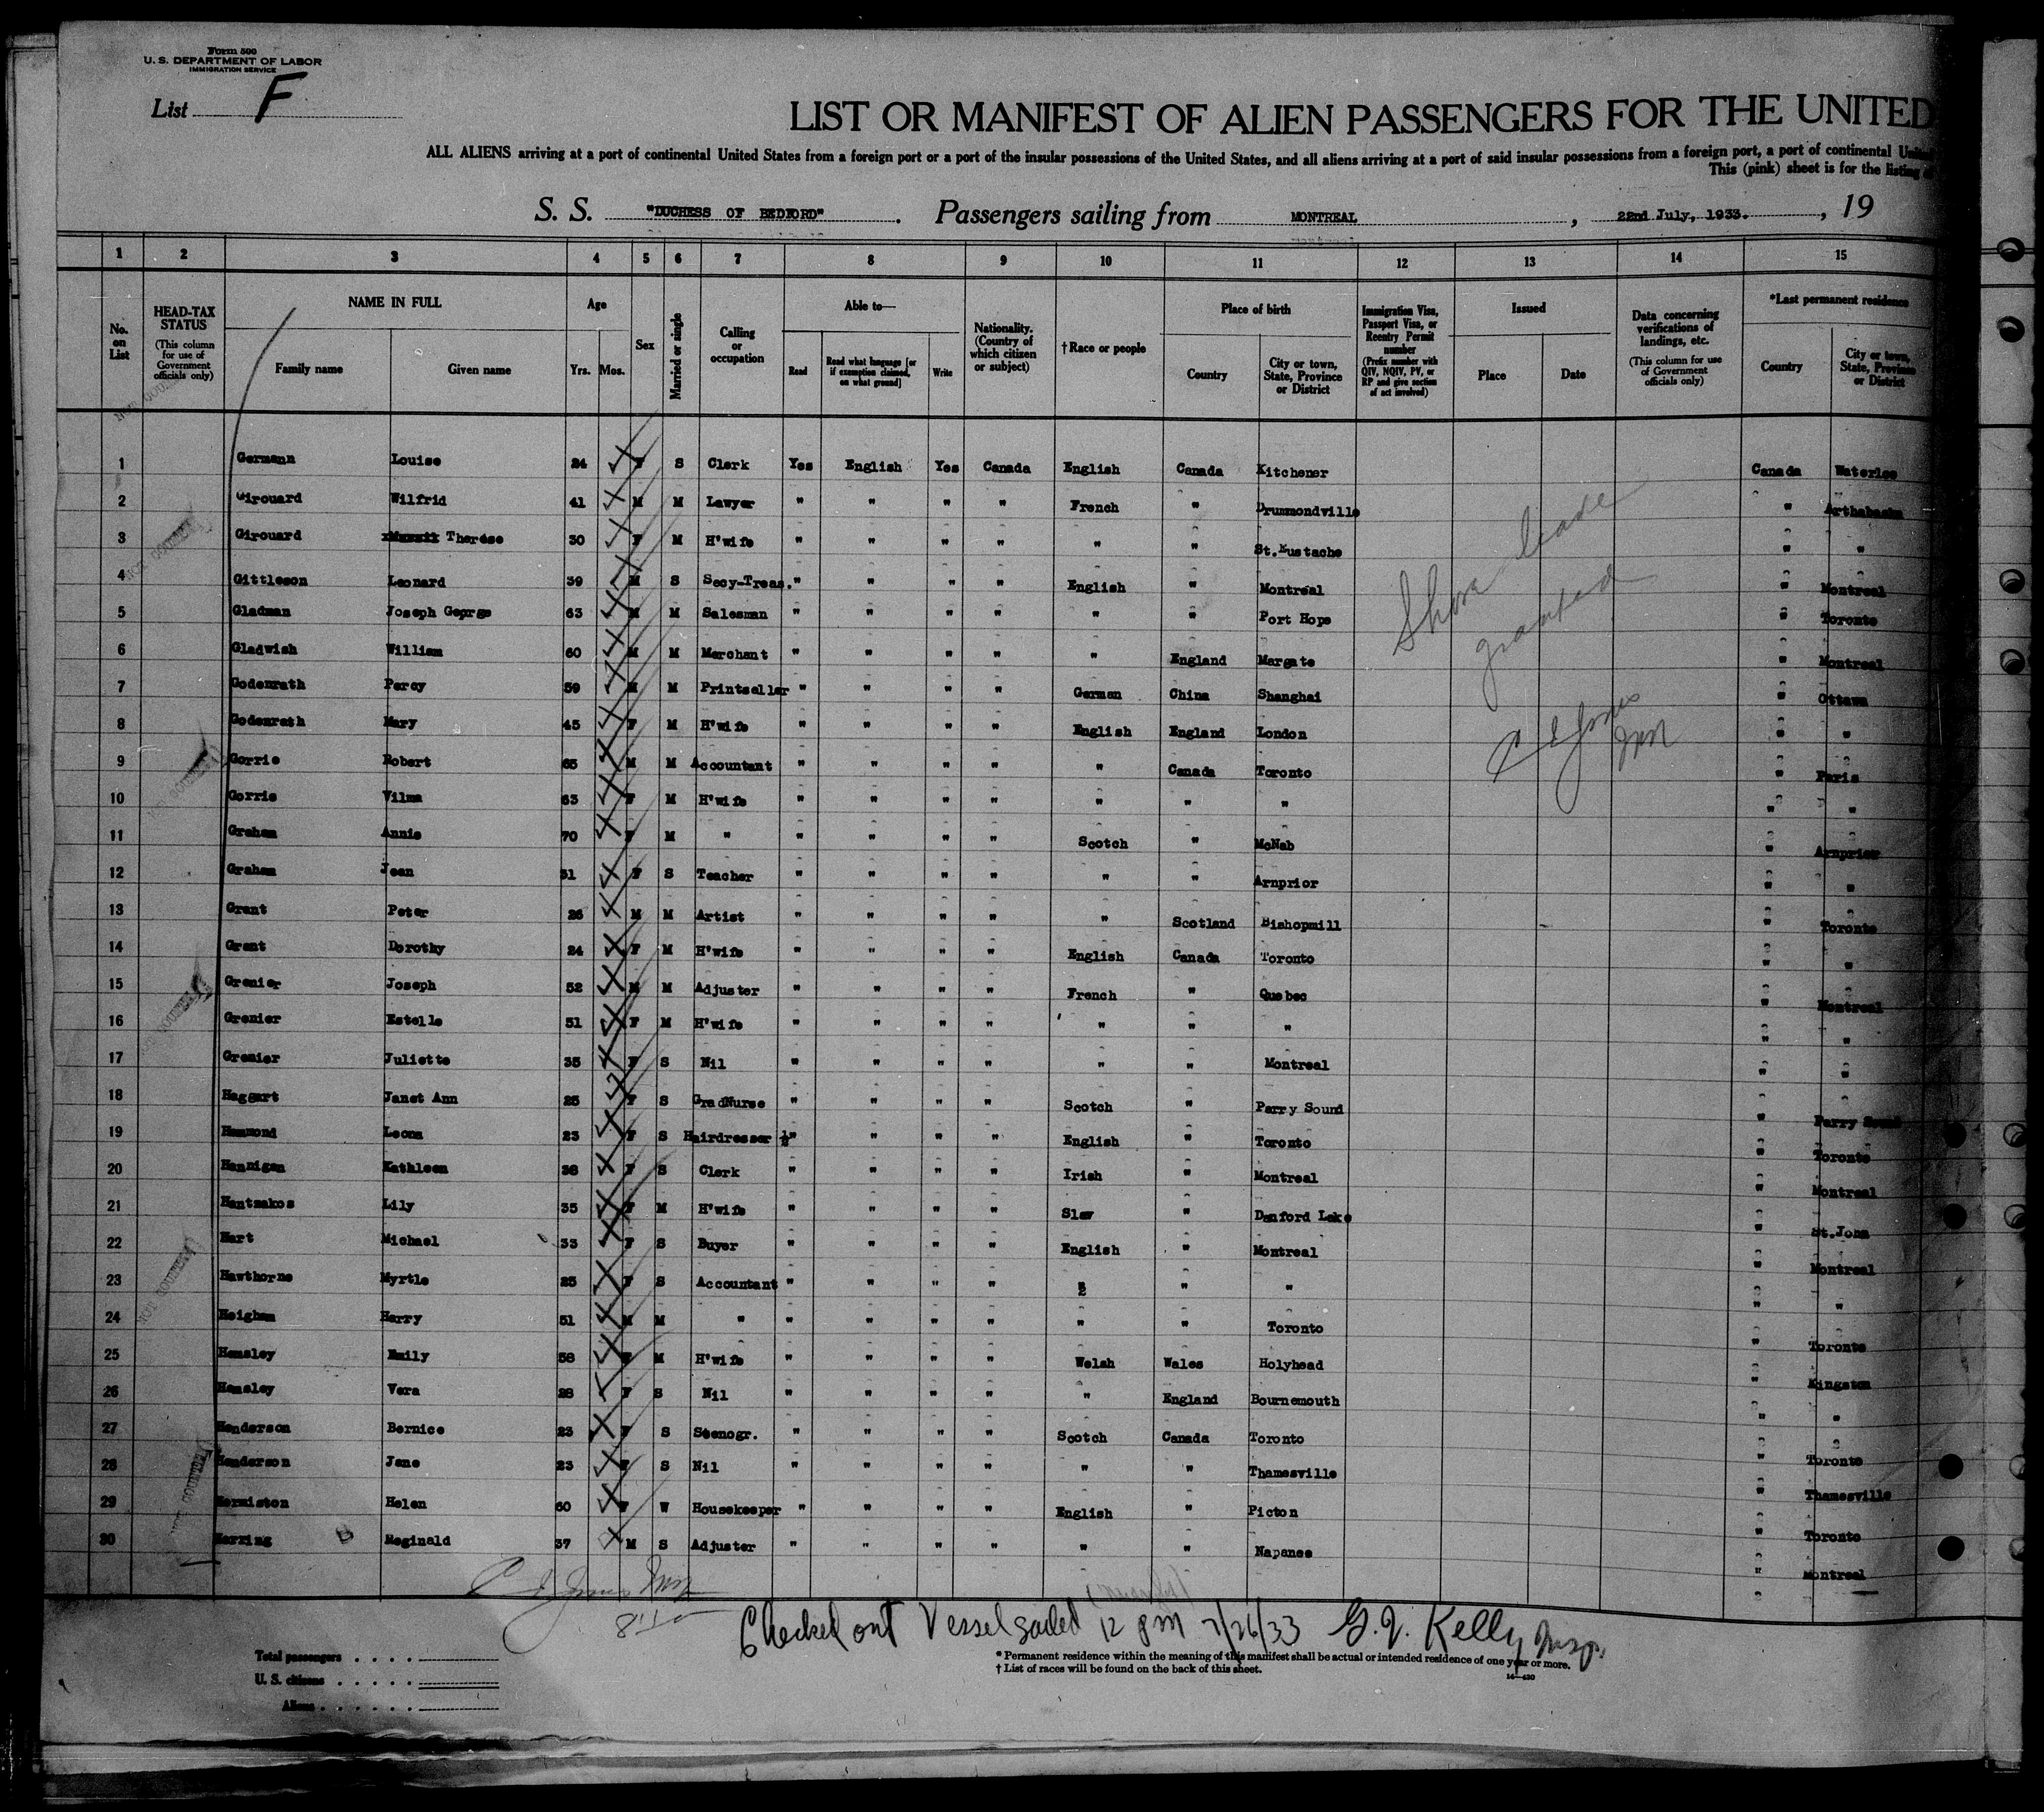 Form 500
U. S. DEPARTMENT OF LABOR
IMMIGRATION SERVICE
List F
LIST OR MANIFEST OF ALIEN PASSENGERS FOR THE UNITED
ALL ALIENS arriving at a port of continental United States from a foreign port or a port of the insular possessions of the United States, and all aliens arriving at a port of said insular possessions from a foreign port, a port of continental United
This (pink) sheet is for the listing of
S. S. "DUCHESS OF BEDFORD". Passengers sailing from MONTREAL, 22nd July, 1933., 19
1 2 3 4 5 6 7 8 9 10 11 12 13 14 15
No. on List
HEAD-TAX STATUS (This column for use of Government officials only)
NAME IN FULL Family name Given name
Age Yrs. Mos.
Sex
Married or single
Calling or occupation
Able to— Read Read what language [or if exemption claimed, on what ground] Write
Nationality. (Country of which citizen or subject)
† Race or people
Place of birth Country City or town, State, Province or District
Immigration Visa, Passport Visa, or Reentry Permit number (Prefix number with QIV, NQIV, PV, or RP and give section of act involved)
Issued Place Date
Data concerning verifications of landings, etc. (This column for use of Government officials only)
*Last permanent residence Country City or town, State, Province or District
1 Germann Louise 24 F S Clerk Yes English Yes Canada English Canada Kitchener Canada Waterloo
2 Girouard Wilfrid 41 M M Lawyer " " " " French " Drummondville " Arthabaska
3 Girouard Therése 30 F M H'wife " " " " " " St.Eustache " "
4 Gittleson Leonard 39 M S Secy-Treas. " " " " English " Montreal " Montreal
5 Gladman Joseph George 63 M M Salesman " " " " " " Port Hope " Toronto
6 Gladwish William 60 M M Merchant " " " " " England Margate " Montreal
7 Godenrath Percy 59 M M Printseller " " " " German China Shanghai " Ottawa
8 Godenrath Mary 45 F M H'wife " " " " English England London " "
9 Gorrie Robert 65 M M Accountant " " " " " Canada Toronto " Paris
10 Gorrie Vilma 63 F M H'wife " " " " " " " " "
11 Graham Annie 70 F M " " " " " Scotch " McNab " Arnprior
12 Graham Jean 31 F S Teacher " " " " " " Arnprior " "
13 Grant Peter 26 M M Artist " " " " " Scotland Bishopmill " Toronto
14 Grant Dorothy 24 F M H'wife " " " " English Canada Toronto " "
15 Grenier Joseph 52 M M Adjuster " " " " French " Quebec " Montreal
16 Grenier Estelle 51 F M H'wife " " " " " " " " "
17 Grenier Juliette 35 F S Nil " " " " " " Montreal " "
18 Haggart Janet Ann 25 F S GradNurse " " " " Scotch " Parry Sound " Parry Sound
19 Hammond Leona 23 F S Hairdresser " " " " English " Toronto " Toronto
20 Hannigan Kathleen 36 F S Clerk " " " " Irish " Montreal " Montreal
21 Hantzakos Lily 35 F M H'wife " " " " Slav " Danford Lake " St.John
22 Hart Michael 33 F S Buyer " " " " English " Montreal " Montreal
23 Hawthorne Myrtle 25 F S Accountant " " " " " " " " "
24 Heigham Harry 51 M M " " " " " " " Toronto " Toronto
25 Hemsley Emily 58 F M H'wife " " " " Welsh Wales Holyhead " Kingston
26 Hemsley Vera 28 F S Nil " " " " " England Bournemouth " "
27 Henderson Bernice 23 F S Stenogr. " " " " Scotch Canada Toronto " Toronto
28 Henderson Jane 23 F S Nil " " " " " " Thamesville " Thamesville
29 Hermiston Helen 60 F W Housekeeper " " " " English " Picton " Toronto
30 Herring Reginald 37 M S Adjuster " " " " " " Napanee " Montreal
Shore leave
granted
Checked out Vessel sailed 12 pm 7/26/33 G.J. Kelly Insp.
* Permanent residence within the meaning of this manifest shall be actual or intended residence of one year or more.
† List of races will be found on the back of this sheet.
14—430
Total passengers
U. S. citizens
Aliens